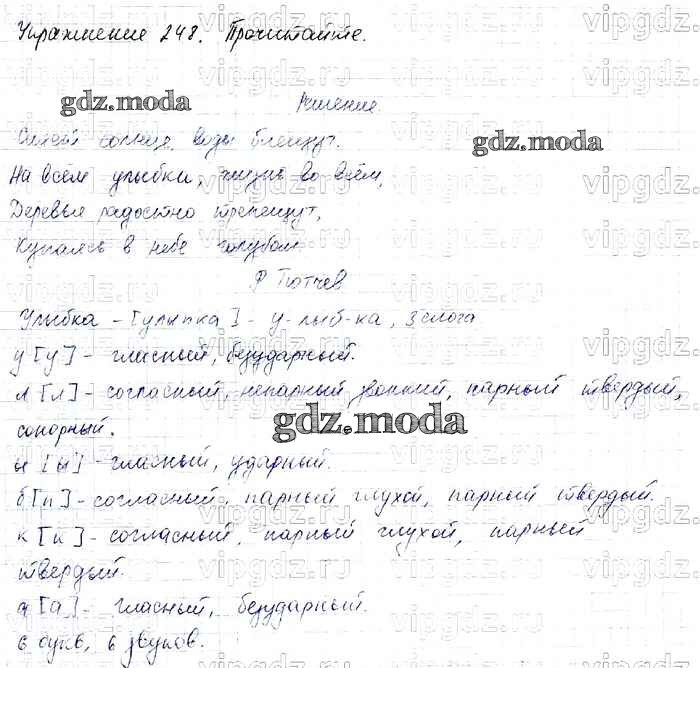 Упражнение 248. Прочитайте.
gdz.moda
Решение.
gdz.moda
солнце, воды блещут.
На всём улыбка, жизнь во всём,
Деревья радостно трепещут,
Купаясь в небе голубом.
Ф Тютчев
Улыбка - [улыпка] - у-лыб-ка, 3 слога
у [у] - гласный, безударный.
л [л] - согласный, непарный звонкий, парный твердый,
gdz.moda
сонорный.
ы [ы] - гласный, ударный.
б [п] - согласный, парный глухой, парный твердый.
к [к] - согласный, парный глухой, парный
твердый.
а [а] - гласный, безударный.
6 букв, 6 звуков.
vipgdz.ru